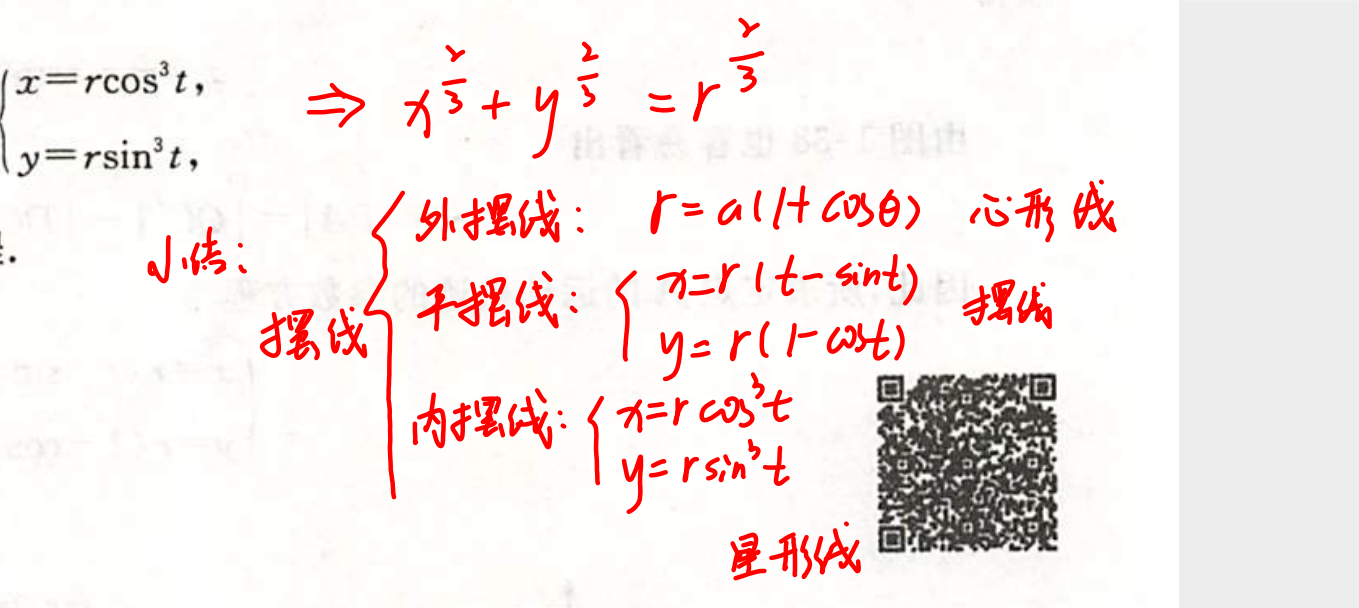 x=rcos³t,
y=rsin³t,
⇒ x^(2/3) + y^(2/3) = r^(2/3)
小结:
摆线
外摆线: r=a(1+cosθ) 心形线
平摆线: x=r(t-sint)
y=r(1-cost) 摆线
内摆线: x=rcos³t
y=rsin³t
星形线